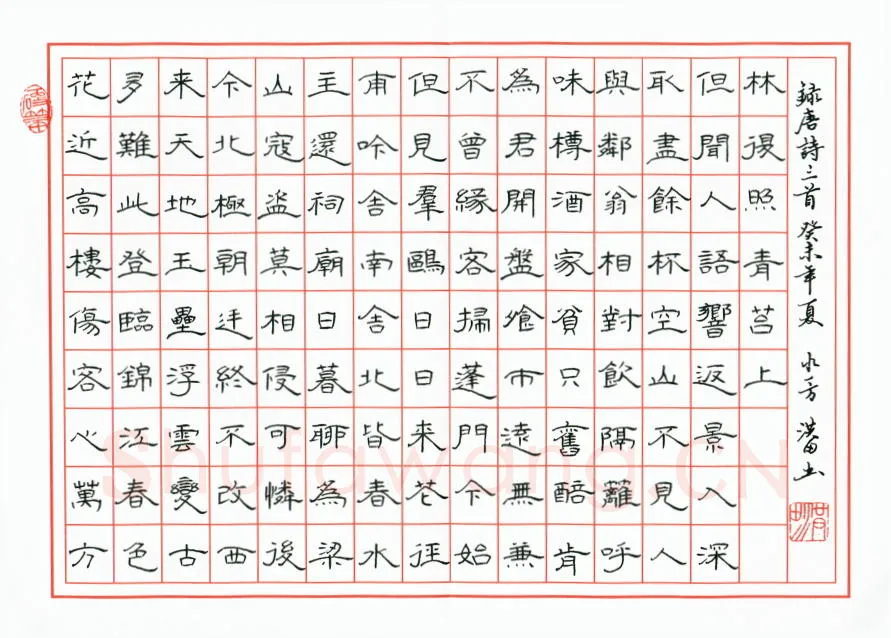 花近高樓傷客心萬方
多難此登臨錦江春色
来天地玉壘浮雲變古
今北極朝廷終不改西
山寇盜莫相侵可憐後
主還祠廟日暮聊為梁
甫吟舍南舍北皆春水
但見羣鷗日日来花徑
不曾緣客掃蓬門今始
為君開盤飧市遠無兼
味樽酒家貧只舊醅肯
與鄰翁相對飲隔籬呼
取盡餘杯空山不見人
但聞人語響返景入深
林復照青苔上
録唐詩三首癸未年夏
Shufawang.CN